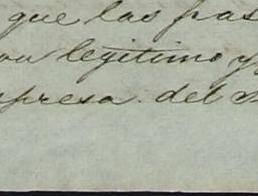 que las pas
on legitimo y
presa del